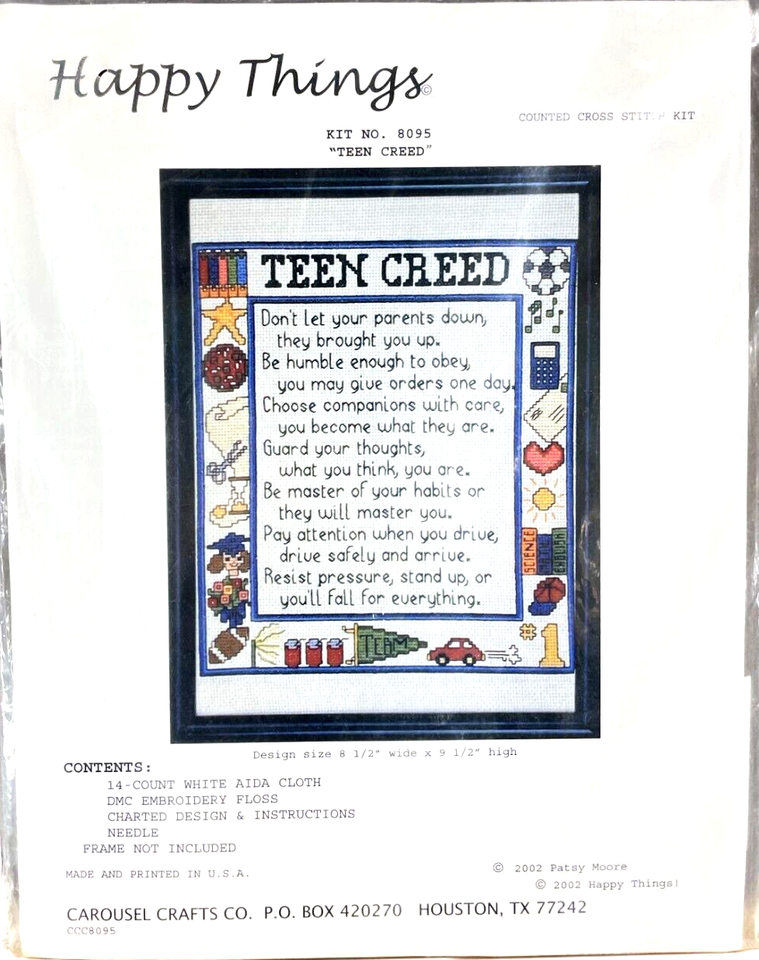 Happy Things©
COUNTED CROSS STITCH KIT
KIT NO. 8095
"TEEN CREED"
TEEN CREED
Don't let your parents down,
they brought you up.
Be humble enough to obey,
you may give orders one day.
Choose companions with care,
you become what they are.
Guard your thoughts,
what you think, you are.
Be master of your habits or
they will master you.
Pay attention when you drive,
drive safely and arrive.
Resist pressure, stand up, or
you'll fall for everything.
SCIENCE
ENGLISH
TEAM
#1
Design size 8 1/2" wide x 9 1/2" high
CONTENTS:
14-COUNT WHITE AIDA CLOTH
DMC EMBROIDERY FLOSS
CHARTED DESIGN & INSTRUCTIONS
NEEDLE
FRAME NOT INCLUDED
MADE AND PRINTED IN U.S.A.
© 2002 Patsy Moore
© 2002 Happy Things!
CAROUSEL CRAFTS CO. P.O. BOX 420270 HOUSTON, TX 77242
CCC8095